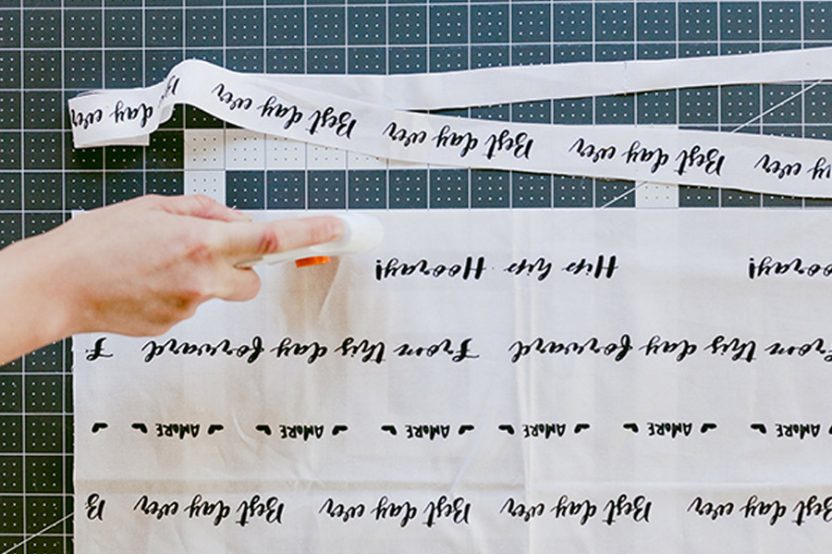 Best day ever Best day ever Best day ever Best day ever B
AMORE AMORE AMORE AMORE AMORE AMORE
From this day forward From this day forward F
ooray! Hip hip Hooray!
ay ever Best day ever Best day ever Best day ever
day ever